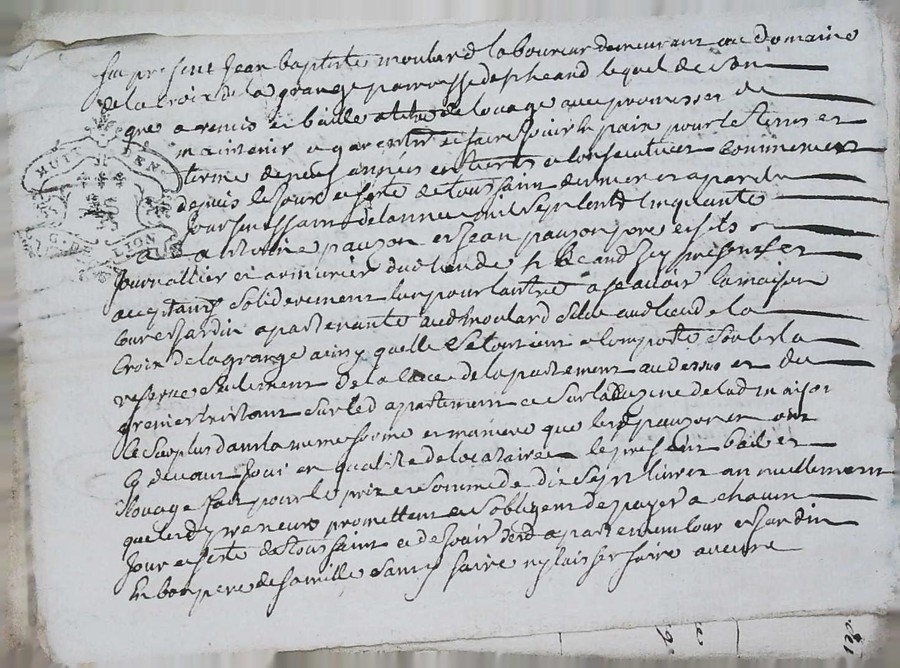 fut présent Jean baptiste moulard laboureur demeurant au Domaine
de la Croix de la grange parroisse de lequel de son
gré a remis et baillé a titre de louage avec promesses de
maintenir garentir et faire Jouir en paix pour le tems et
terme de neuf années entieres et Consecutives Commencées
depuis le Jour et feste de toussaint dernier et a pareil
Jour finissant de lannée mil sept cent Cinquante
a antoine pauzon et Jean pauzon pere et fils
Journallier et armurier dud lieu de present et
acceptants solidairement lun pour lautre a scavoir la maison
Cour et Jardin apartenante aud moulard scitué aud lieu de la
Croix de la grange ainsy quelle setend et Comporte soub la
reserve seulement de la cave de lapartement au dessus et du
grenier sur led apartement et sur la Cuizine de lad maison
le surplus dans la meme forme et maniere que lesd pauzon en ont
Cy devant Joui en qualité de locataires le present bail et
louage fait pour le prix et somme de dix sept livres annuellement
que lesd preneurs promettent et sobligent de payer a chacun
Jour et feste de toussaint et de Jouir desd apartement Cour et Jardin
en bon pere de famille sans y faire ny laisser faire aucune
MOY
GEN
LION